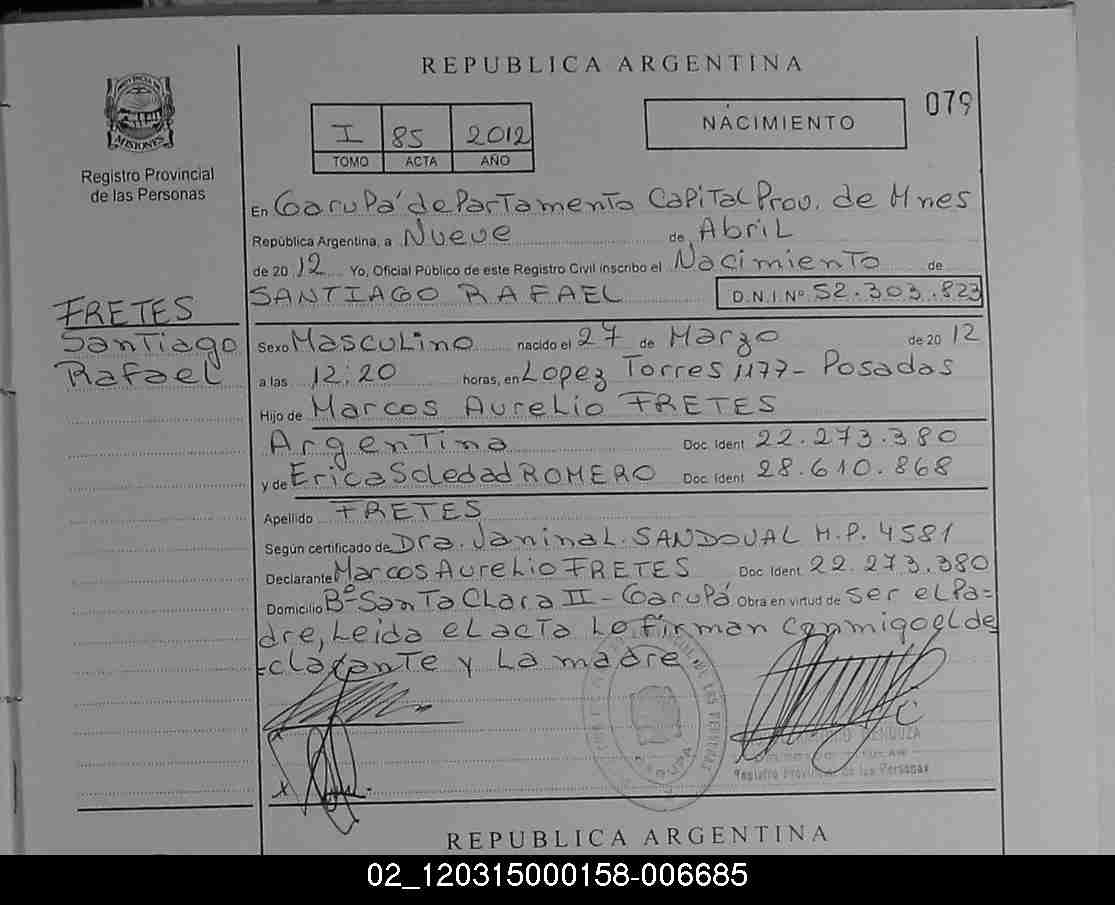 REPUBLICA ARGENTINA
079
NACIMIENTO
I 85 2012
TOMO ACTA AÑO
PROVINCIA DE MISIONES
Registro Provincial
de las Personas
En Garupá departamento Capital Prov. de Mnes
República Argentina, a Nueve de Abril
de 20 12 Yo, Oficial Público de este Registro Civil inscribo el Nacimiento de
SANTIAGO RAFAEL D.N.I. Nº 52.303.823
FRETES
Santiago
Rafael
Sexo Masculino nacido el 27 de Marzo de 20 12
a las 12:20 horas, en Lopez Torres 1177- Posadas
Hijo de Marcos Aurelio FRETES
Argentina Doc. Ident 22.273.380
y de Erica Soledad ROMERO Doc. Ident 28.610.868
Apellido FRETES
Según certificado de Dra. Janina L. SANDOVAL M.P. 4581
Declarante Marcos Aurelio FRETES Doc. Ident. 22.273.380
Domicilio Bº Santa Clara II - Garupá Obra en virtud de ser el Pa=
dre, Leida el acta Lo firman conmigo el de
=clarante y La madre.-
DE LAS PERSONAS
GARUPA
MENDOZA
Registro Provincial de las Personas
x
REPUBLICA ARGENTINA
02_120315000158-006685